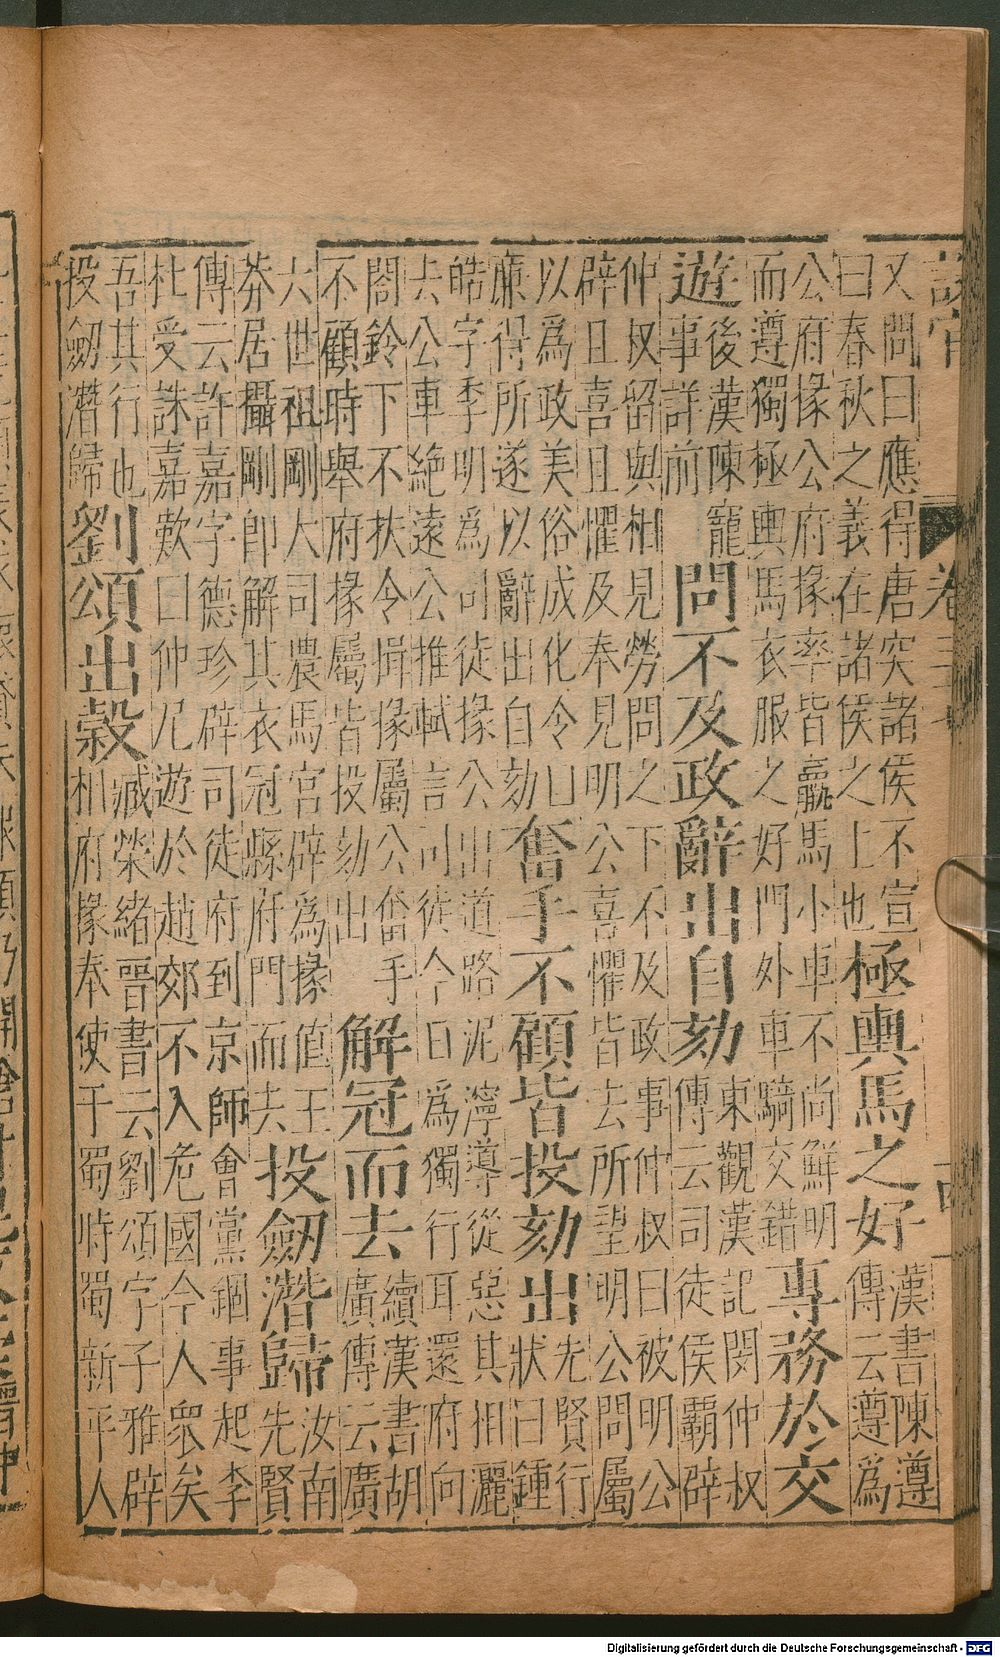 又問曰應得唐突諸侯不宣
曰春秋之義在諸侯之上也
極輿馬之好
漢書陳遵
傳云遵為
公府掾公府掾率皆羸馬小車不尚鮮明
而遵獨極輿馬衣服之好門外車騎交錯
專務於交
遊
後漢陳寵
事詳前
問不及政辭出自劾
東觀漢記閔仲叔
傳云司徒侯霸辟
仲叔留與相見勞問之下不及政事仲叔曰被明公
辟且喜且懼及奉見明公喜懼皆去所望明公問屬
以為政美俗成化令以
廉得所遂以辭出自劾
奮手不顧皆投劾出
先賢行
狀曰鍾
皓字季明為司徒掾公出道路泥濘導從惡其相灑
去公車絕遠公推軾言司徒今日為獨行耳還府向
閤鈴下不扶令揖掾屬公奮手
不顧時舉府掾屬皆投劾出
解冠而去
續漢書胡
廣傳云廣
六世祖剛大司農馬宮辟為掾值王
莽居攝剛即解其衣冠縣府門而去
投劒潛歸
汝南
先賢
傳云許嘉字德珍辟司徒府到京師會黨錮事起李
杜受誅嘉歎曰仲尼遊於趙郊不入危國今人眾矣
吾其行也
投劒潛歸
劉頌出穀
臧榮緒晉書云劉頌字子雅辟
相府掾奉使于蜀時蜀新平人
Digitalisierung gefördert durch die Deutsche Forschungsgemeinschaft - DFG